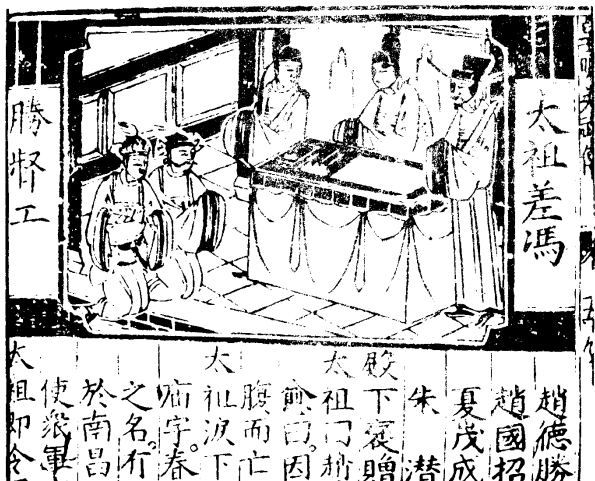 太祖差馮
勝督工
趙德勝
趙國招
夏茂成
朱潜
殿下褒贈
太祖問趙
僉曰。因
腹而亡
太祖淚下
庙字。春
之名。
於南昌
使衆軍
太祖即令